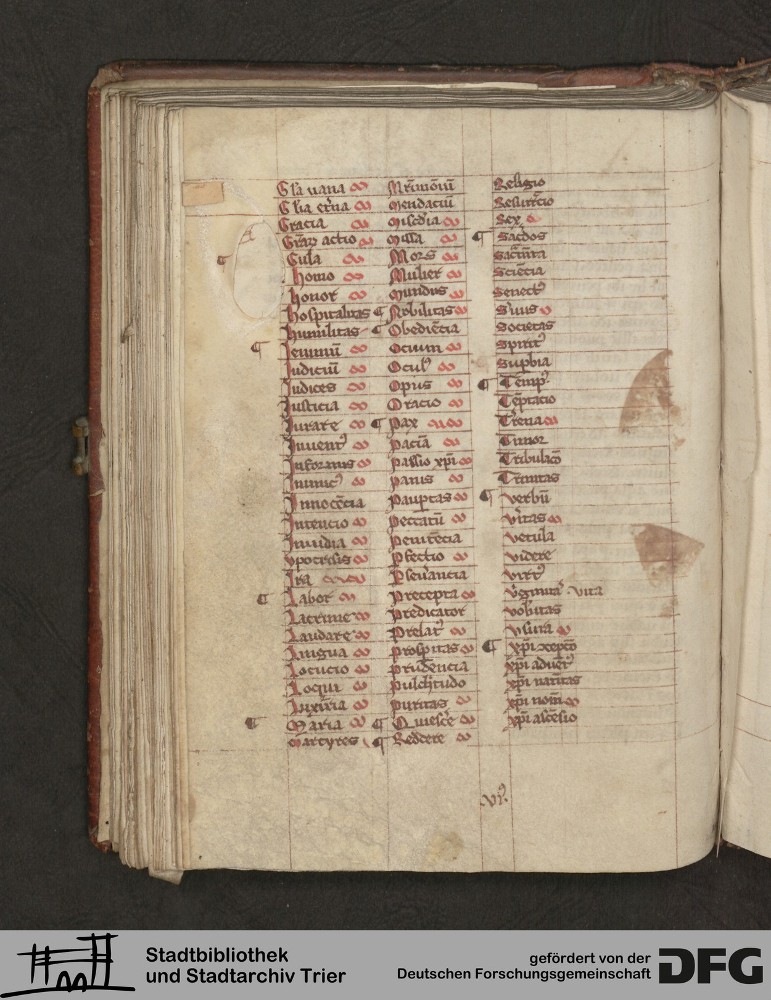 Gl'a uana
Gl'ia et'na
Gracia
Gr̄aꝝ actio
Gula
Homo
Honor
Hospitalitas
Humilitas
Ieiuniū
Iudiciū
Iudices
Iusticia
Iurare
Iuuent⁹
Infirmus
Inimic⁹
Innocēcia
Intencio
Inuidia
Ypocrisis
Ira
Labor
Lacrime
Laudare
Lingua
Locucio
Loqui
Luxuria
Maria
Martyres
Mr̄imoniū
Mendaciū
Misc̄dia
Missa
Mors
Mulier
Mundus
Nobilitas
Obediēcia
Ocium
Ocul⁹
Opus
Oracio
Pax
Paciā
Passio xp̄i
Panis
Paup̄tas
Peccatū
Penitēcia
Pfectio
Pseūancia
Precepta
Predicator
Prelat⁹
Prosp̄itas
Prudēncia
Pulchtudo
Puritas
Quiesc̄e
Reddere
Religio
Resurrc̄io
Sex
Sac̄dos
Sacm̄ta
Sciēcia
Senect⁹
S'uus
Societas
Spirit⁹
Supbia
Temp⁹
Tēptacio
T'rena
Timor
Tribulac̄o
Trinitas
Verbū
V'itas
Vetula
Videre
Virt⁹
V'ginita⁹ · Vita
Vob'itas
Vsura
Xp̄i ꝯcepc̄o
Xp̄i aduet⁹
Xp̄i natiūtas
Xp̄i nom̄
Xp̄i ascēsio
VI⁹
Stadtbibliothek
und Stadtarchiv Trier
gefördert von der
Deutschen Forschungsgemeinschaft
DFG